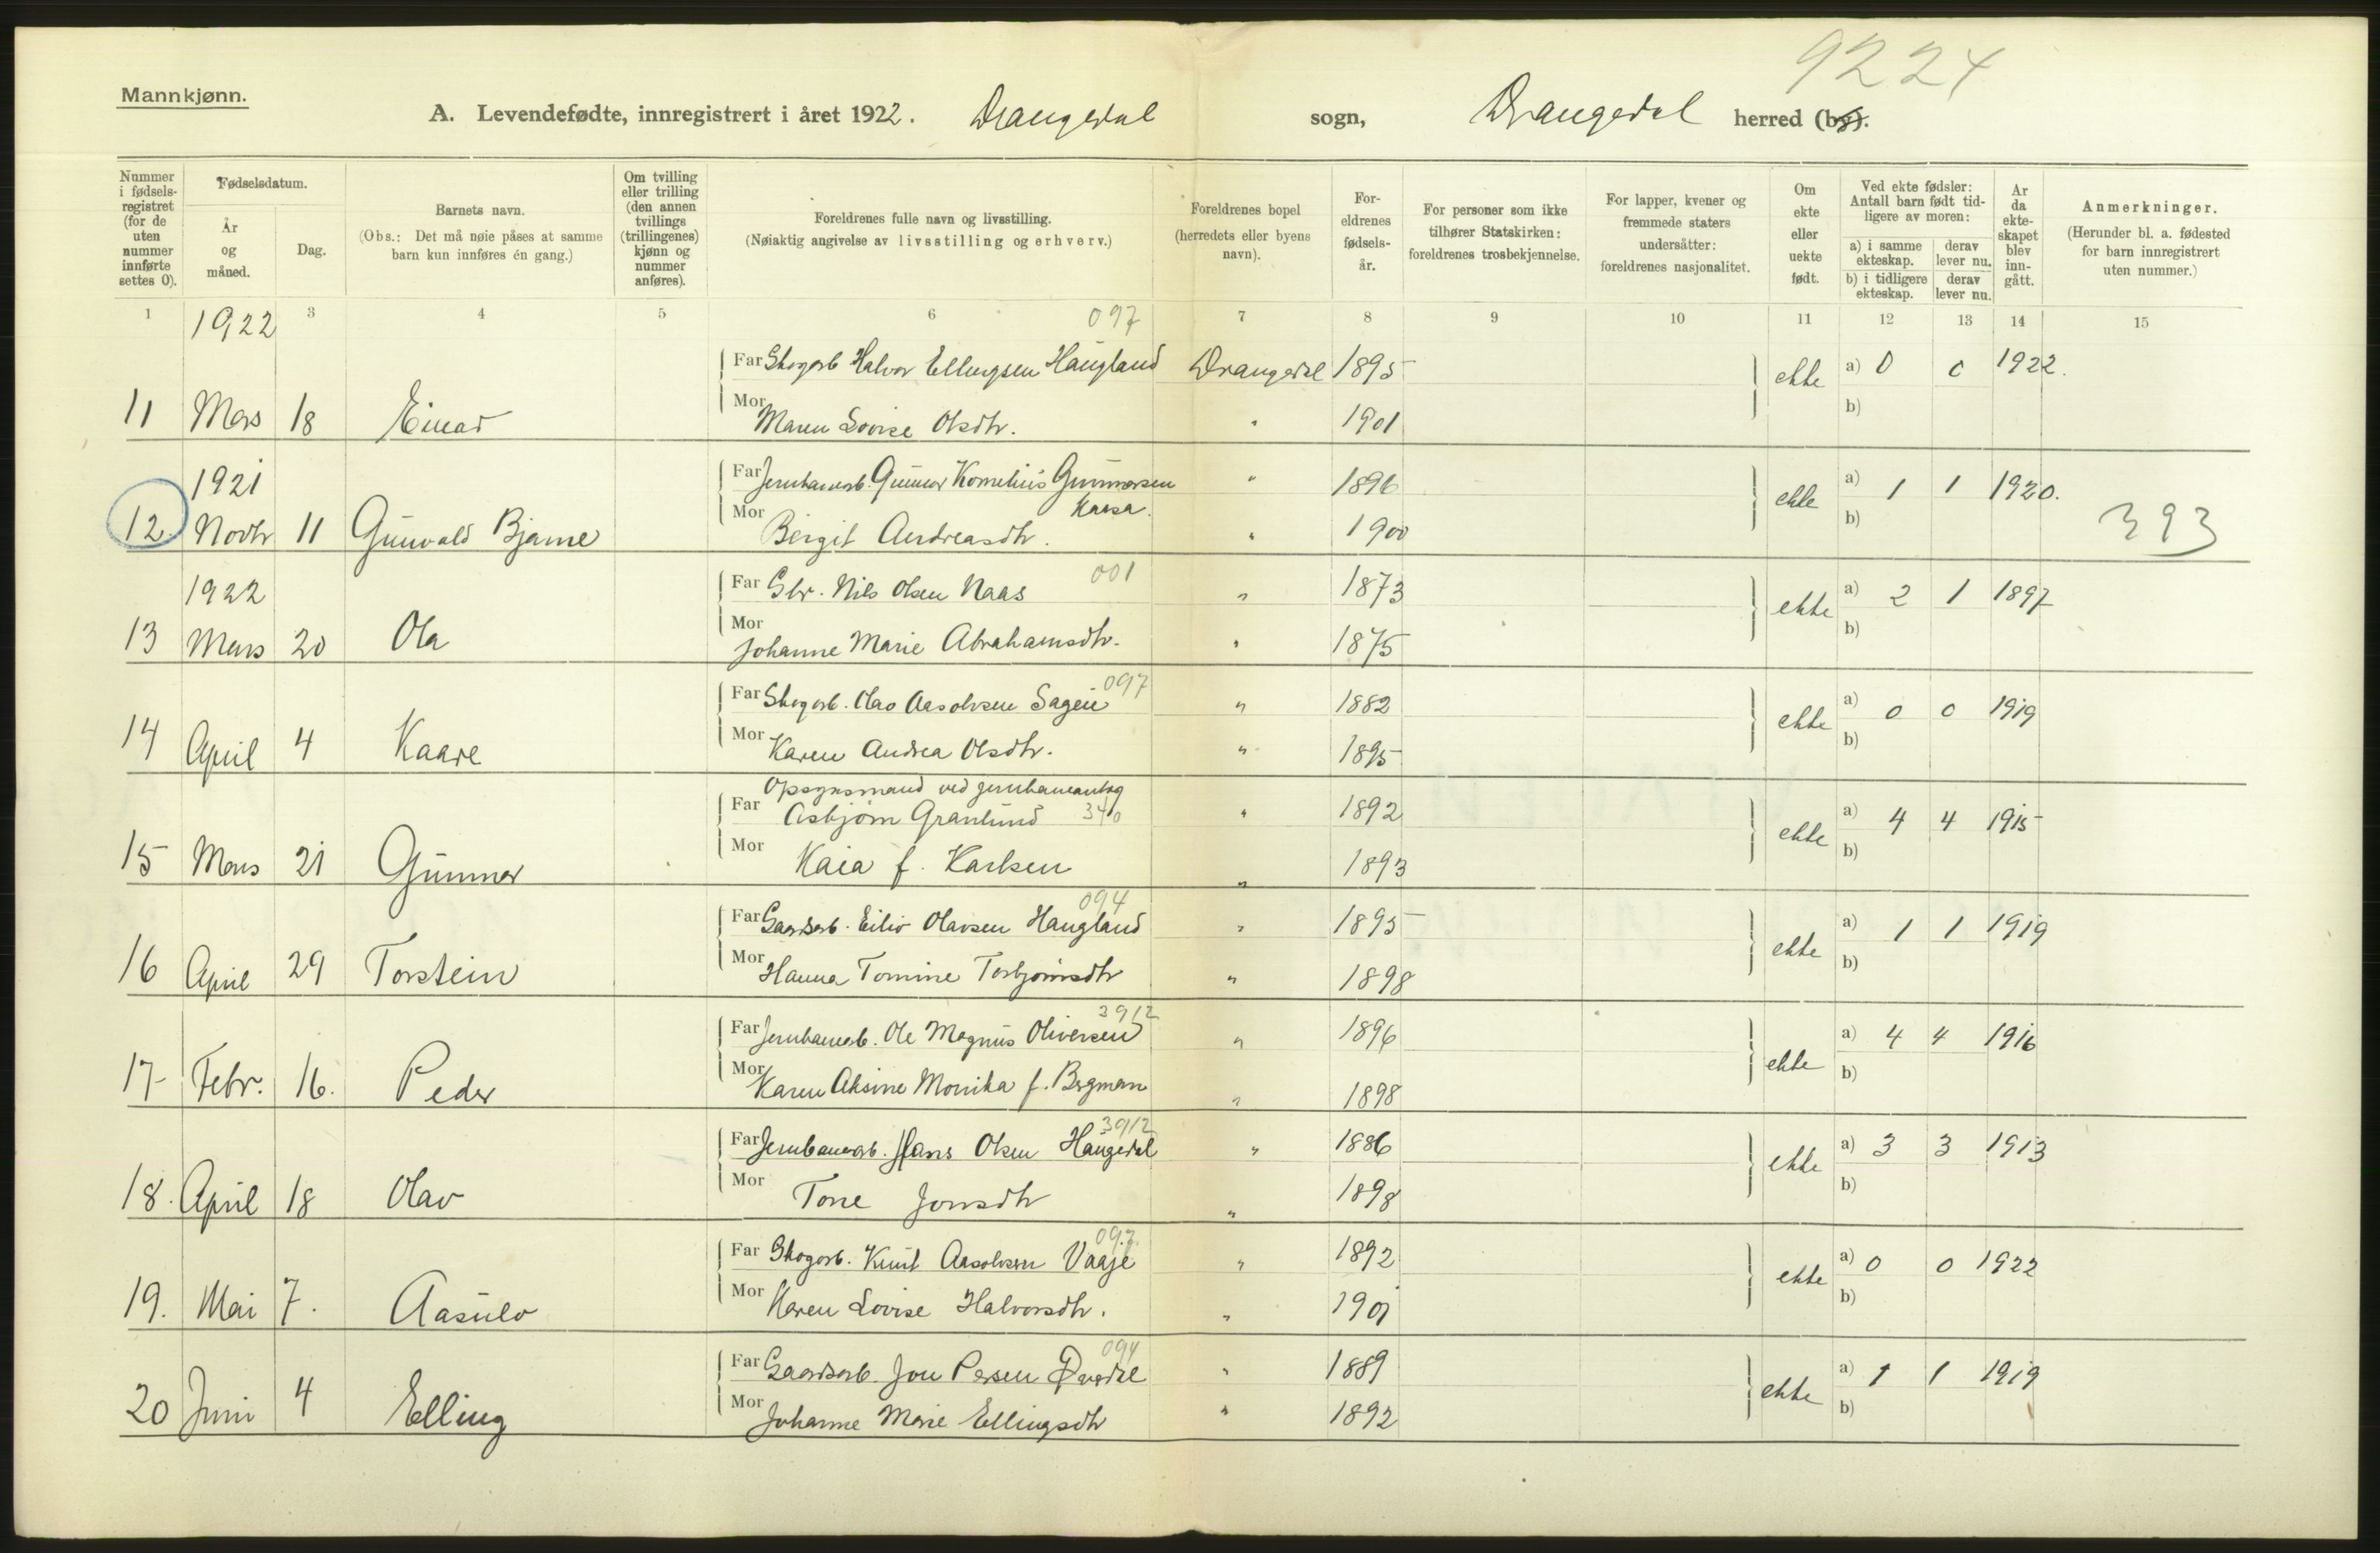 9224
Mannkjønn.
A. Levendefødte, innregistrert i året 1922. Drangedal sogn, Drangedal herred (by).
Nummer i fødsels-registret (for de uten nummer innførte settes 0).
Fødselsdatum.
År og måned.
Dag.
Barnets navn.
(Obs.: Det må nøie påses at samme barn kun innføres én gang.)
Om tvilling eller trilling (den annen tvillings (trillingenes) kjønn og nummer anføres).
Foreldrenes fulle navn og livsstilling.
(Nøiaktig angivelse av livsstilling og erhverv.)
Foreldrenes bopel (herredets eller byens navn).
For-eldrenes fødsels-år.
For personer som ikke tilhører Statskirken: foreldrenes trosbekjennelse.
For lapper, kvener og fremmede staters undersåtter: foreldrenes nasjonalitet.
Om ekte eller uekte født.
Ved ekte fødsler: Antall barn født tid-ligere av moren:
a) i samme ekteskap. derav lever nu.
b) i tidligere ekteskap. derav lever nu.
Ar da ekte-skapet blev inn-gått.
Anmerkninger.
(Herunder bl. a. fødested for barn innregistrert uten nummer.)
1 3 4 5 6 7 8 9 10 11 12 13 14 15
1922 097
Far Skogarb Halvor Ellingsen Haugland Drangedal 1895 ekte a) 0 0 1922.
11 Mars 18 Einar Mor Maren Lovise Olsdtr. " 1901 b)
1921 Far Jernbanearb. Gunnar Kornelius Gunnarsen " 1896 ekte a) 1 1 1920.
Kaasa.
12 Novbr 11 Gunvald Bjarne Mor Bergit Andreasdtr. " 1900 b) 393
1922 Far Gbr. Nils Olsen Naas 001 " 1873 ekte a) 2 1 1897
13 Mars 20 Ola Mor Johanne Marie Abrahamsdtr. " 1875 b)
Far Skogarb. Olav Aasolvsen Sagen 097 " 1882 ekte a) 0 0 1919
14 April 4 Kaare Mor Karen Andrea Olsdtr. " 1895 b)
Opsynsmand ved jernbaneanlæg
Far Asbjørn Granlund 340 " 1892 ekte a) 4 4 1915
15 Mars 21 Gunnar Mor Kaia f. Karlsen " 1893 b)
094
Far Gaardsarb. Eiliv Olavsen Haugland " 1895 ekte a) 1 1 1919
16 April 29 Torstein Mor Hanna Tomine Torbjørnsdtr " 1898 b)
3912
Far Jernbanearb. Ole Magnus Oliversen " 1896 ekte a) 4 4 1916
17 Febr. 16. Peder Mor Karen Aksine Monika f. Bergman " 1898 b)
3912
Far Jernbanearb. Hans Olsen Haugedal " 1886 ekte a) 3 3 1913
18. April 18 Olav Mor Tone Jonsdtr " 1898 b)
097.
Far Skogarb. Knut Aasolvsen Vaaje " 1892 ekte a) 0 0 1922
19. Mai 7. Aasulv Mor Karen Lovise Halvorsdtr. " 1901 b)
094
Far Gaardsarb. Jon Persen " 1889 ekte a) 1 1 1919
20 Juni 4 Elling Mor Johanne Marie Ellingsdtr " 1892 b)